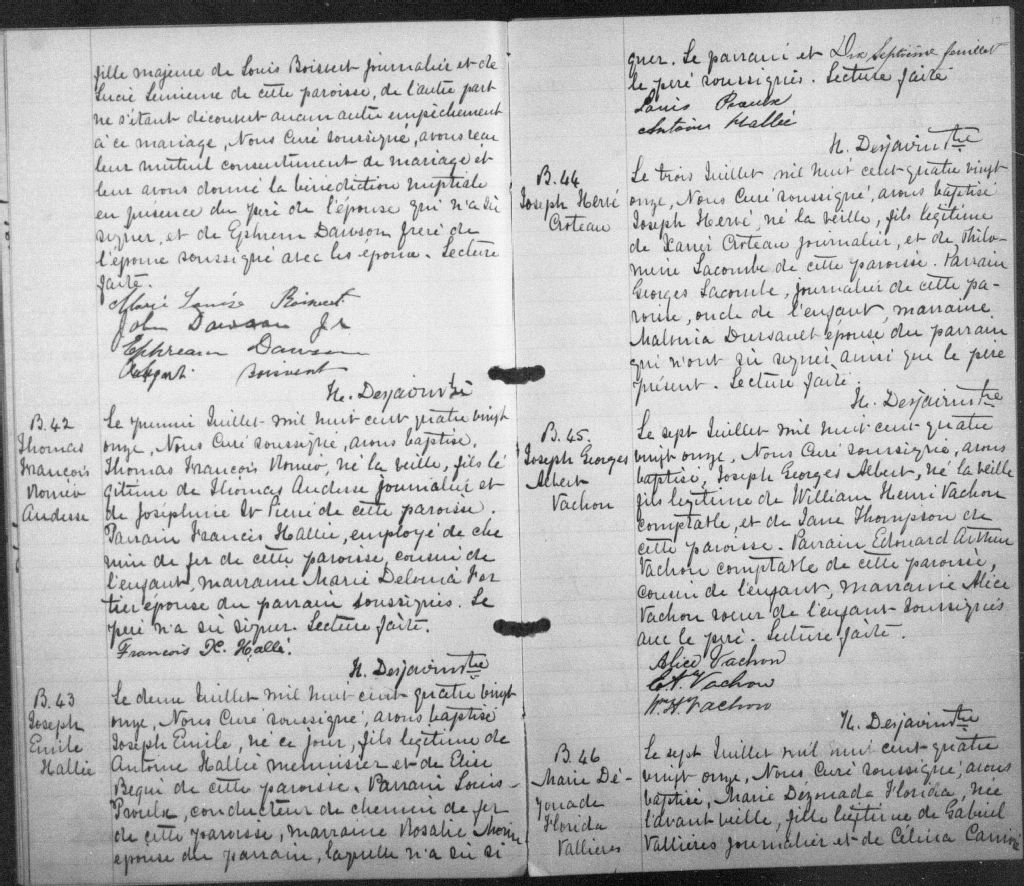 fille majeure de Louis Boisvert journalier et de
Lucie Lemieux de cette paroisse, de l'autre part
ne s'étant découvert aucun autre empêchement
à ce mariage, Nous Curé soussigné, avons reçu
leur mutuel consentement de mariage et
leur avons donné la bénédiction nuptiale
en présence du père de l'épouse qui n'a su
signer, et de Ephrem Dawson frère de
l'époux soussigné avec les époux. Lecture
faite.
Marie Louise Boisvert
John Dawson Jr
Ephream Dawson
boisvert
N. Desjarins Ptre
B. 42
Thomas
François
Roméo
Andesse
Le premier Juillet mil huit cent quatre vingt
onze, Nous Curé soussigné, avons baptisé,
Thomas François Roméo, né la veille, fils lé
gitime de Thomas Andesse journalier et
de Joséphine St Pierre de cette paroisse.
Parrain Francis Hallie, employé de che
min de fer de cette paroisse, cousin de
l'enfant, marraine Marie Delemá For
tier épouse du parrain soussignés. Le
père n'a su signer. Lecture faite.
François X. Hallé.
N. Desjarins Ptre
B. 43
Joseph
Emile
Hallie
Le deux Juillet mil huit cent quatre vingt
onze, Nous Curé soussigné, avons baptisé
Joseph Emile, né ce jour, fils légitime de
Antoine Hallie menuisier et de Elise
Bequi de cette paroisse. Parrain Louis
conducteur de chemin de fer
de cette paroisse, marraine Rosalie Morin
épouse du parrain, laquelle n'a su si
Dix Septième feuillet
gner. Le parrain et
le père soussignés. Lecture faite
Louis
Antoine Hallée
N. Desjarins Ptre
B. 44
Joseph Hervé
Croteau
Le trois Juillet mil huit cent quatre vingt
onze, Nous Curé soussigné, avons baptisé
Joseph Hervé, né la veille, fils légitime
de Xavier Croteau journalier, et de Philo-
mène Lacombe de cette paroisse. Parrain
Georges Lacombe, journalier de cette pa-
roisse, oncle de l'enfant, marraine
Malvina Dursault épouse du parrain
qui n'ont su signer ainsi que le père
présent. Lecture faite.
N. Desjarins Ptre
B. 45.
Joseph Georges
Albert
Vachon
Le sept Juillet mil huit cent quatre
vingt onze, Nous Curé soussigné, avons
baptisé, Joseph Georges Albert, né la veille
fils légitime de William Henri Vachon
comptable, et de Jane Thompson de
cette paroisse. Parrain Edouard Arthur
Vachon comptable de cette paroisse,
cousin de l'enfant, marraine Alice
Vachon soeur de l'enfant soussignés
avec le père. Lecture faite.
Alice Vachon
E A Vachon
Wm H Vachon
N. Desjarins Ptre
B. 46
Marie Dé-
zonade
Florida
Vallières
Le sept Juillet mil huit cent quatre
vingt onze, Nous Curé soussigné, avons
baptisé, Marie Dezonada Florida, née
l'avant veille, fille légitime de Gabriel
Vallières journalier et de Célina